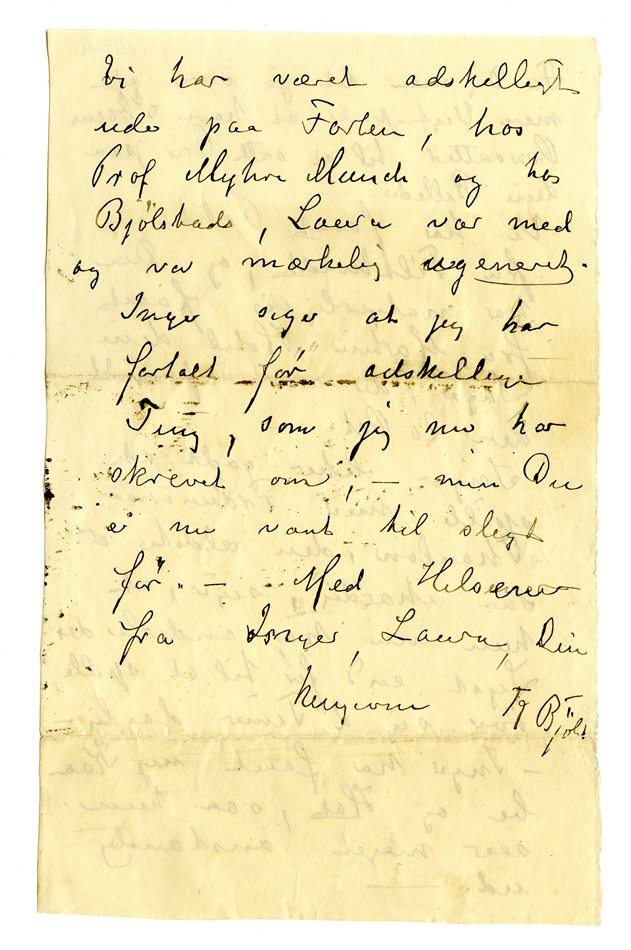 Vi har været adskelligt
ude paa Forten, hos
Prof Myhre Munch og hos
Bjölstads, Laura var med
og var mærkelig ugeneret.
Inger siger at jeg har
fortalt før adskellige
Ting, som jeg nu har
skrevet om, – men Du
er nu vant til sligt
før. – Med Hilsener
fra Inger, Laura, Din
hengivne K Bjöls